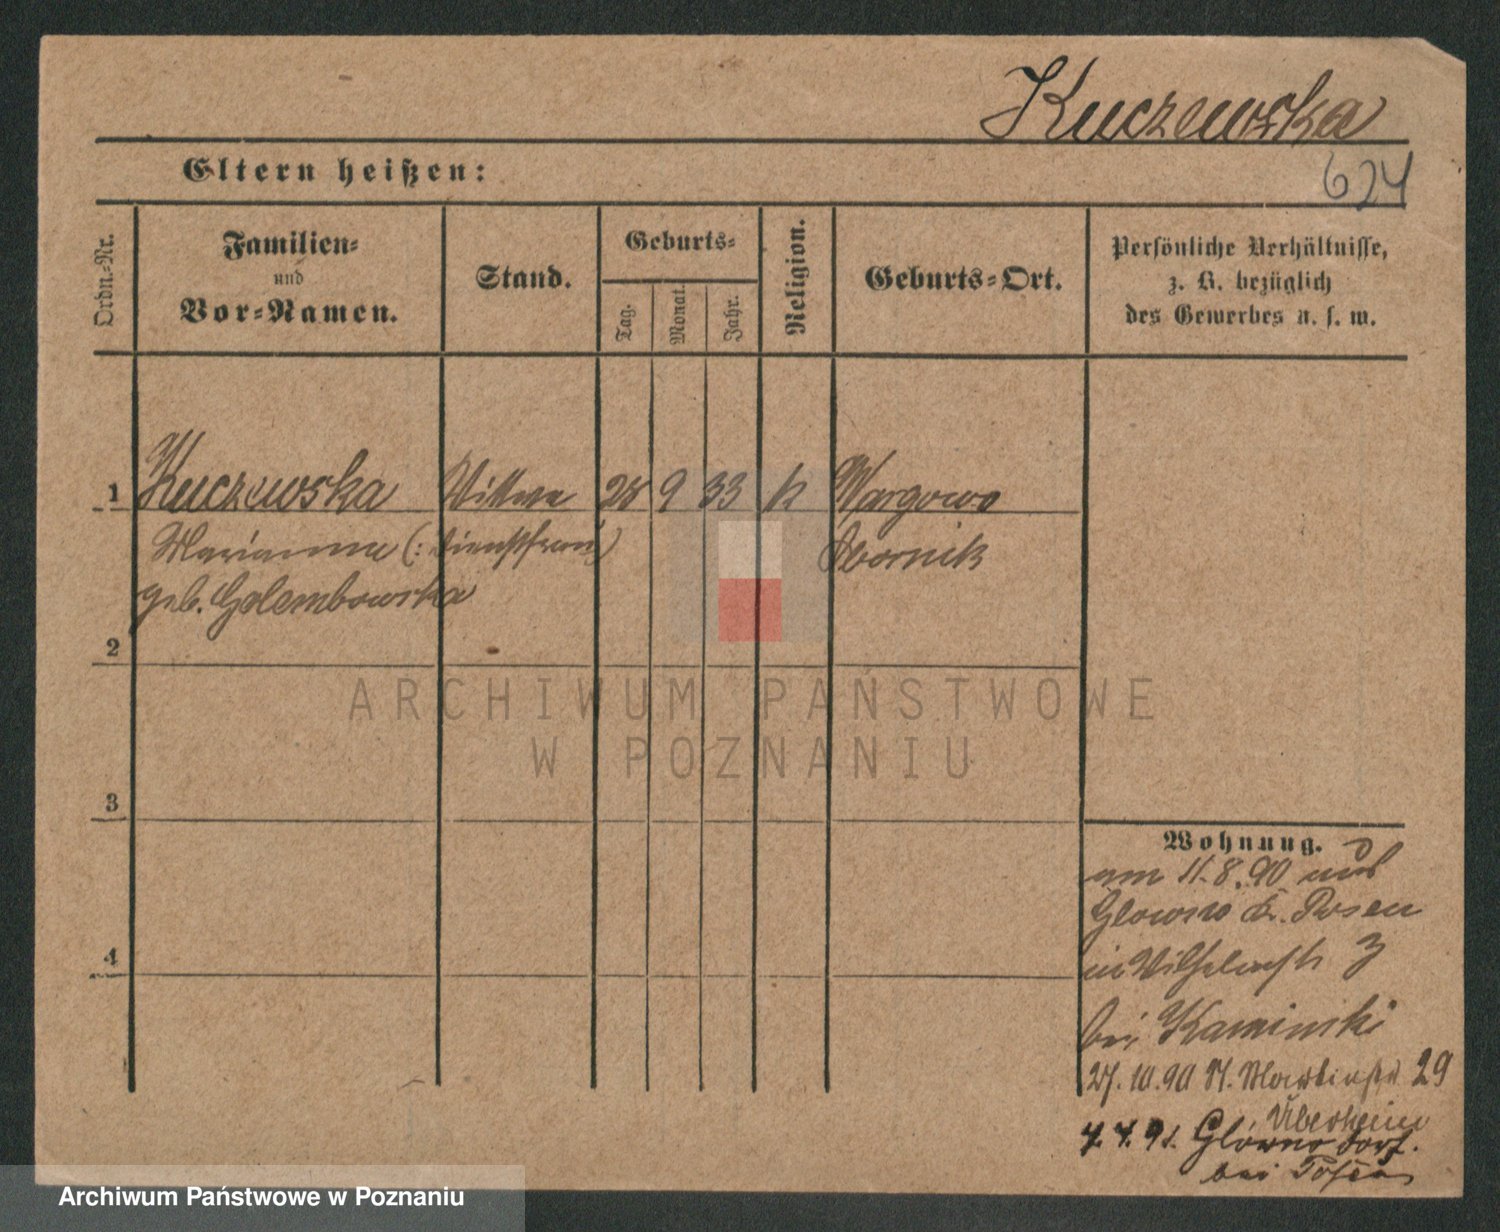 Kuczewska
Eltern heißen:
624
Ordn.-Nr.
Familien-
und
Vor-Namen.
Stand.
Geburts-
Tag.
Monat.
Jahr.
Religion.
Geburts-Ort.
Persönliche Verhältnisse,
z. B. bezüglich
des Gewerbes u. s. w.
1 Kuczewska Wittwe 28 9 33 k Wargowo
Marianna (: Dienstfrau) Obornik
geb. Golembowska
2
ARCHIWUM PAŃSTWOWE
W POZNANIU
3
4
Wohnung.
am 11.8.90 aus
Glowno Kr. Posen
in Wilhelmstr. 3
bei Kaminski
27.10.90 St. Martinstr 29
4.4.91. Glówno dorf.
bei Posen
Archiwum Państwowe w Poznaniu